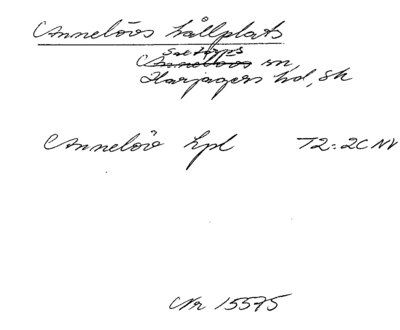 Annelövs hållplats
Saxtorps
Annelövs sn,
Harjagers hd, Sk
Annelöv hpl T2:2C NV
Nr 15575